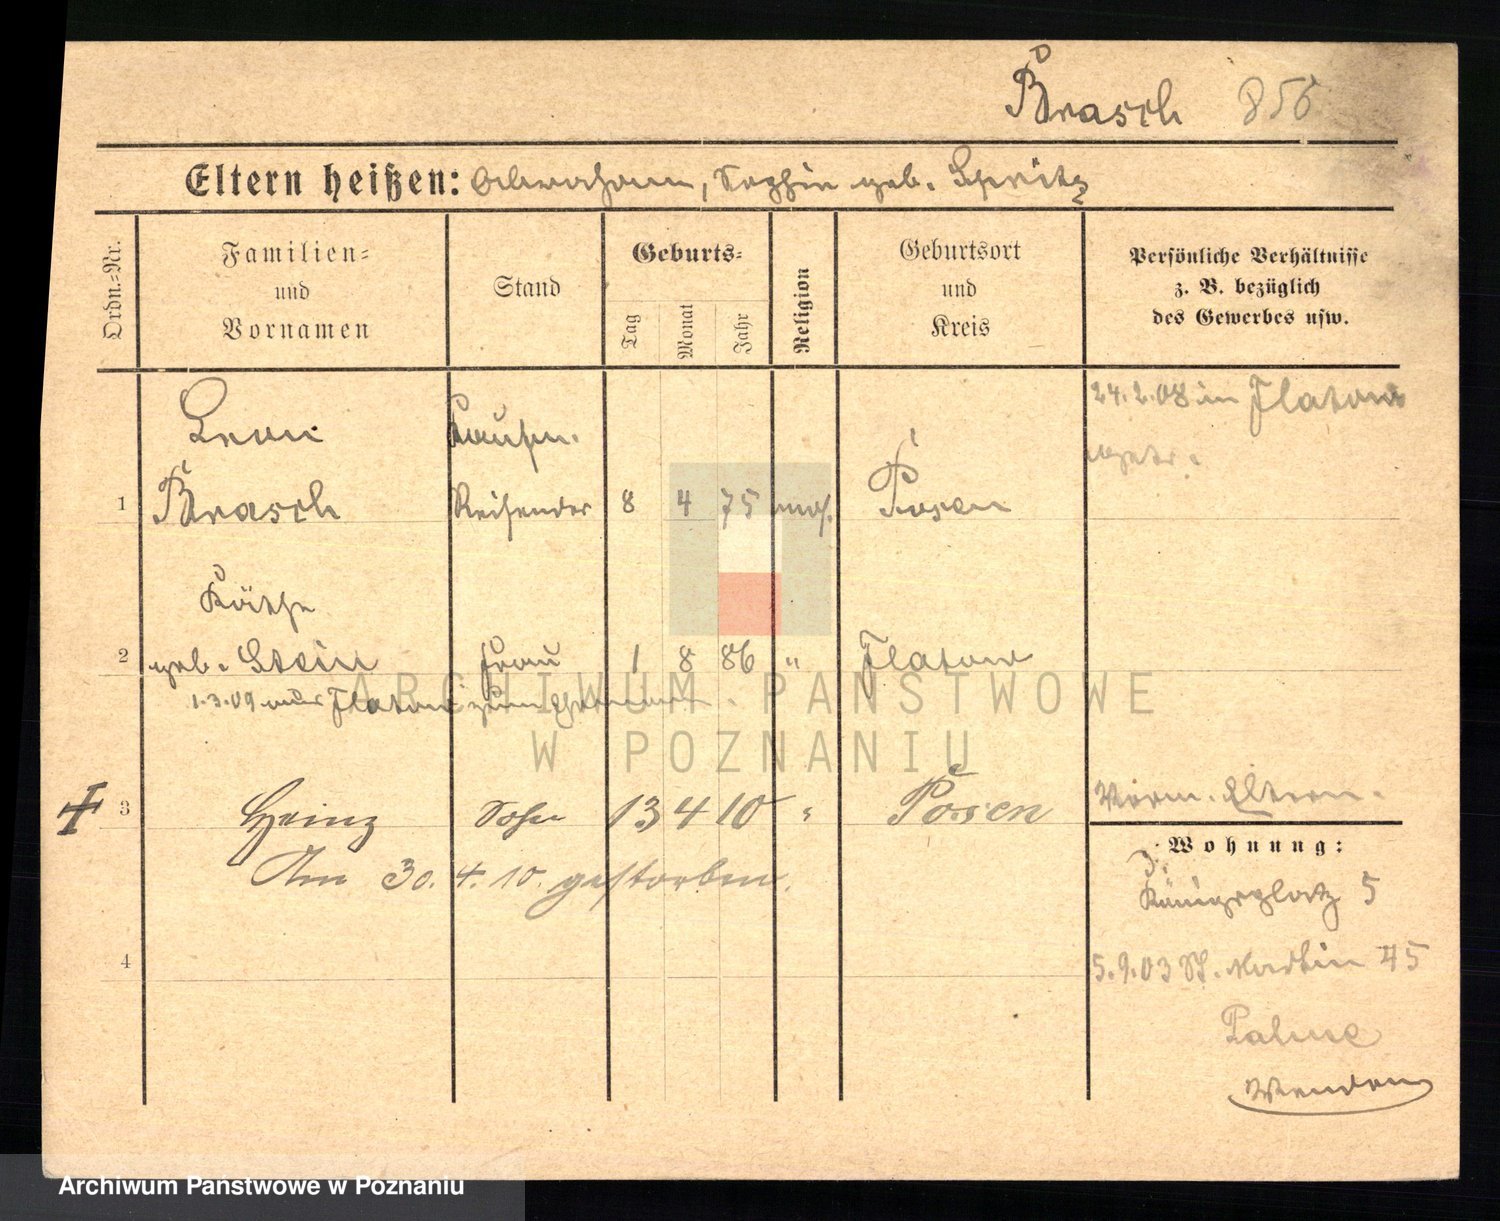 Brasch 856
Eltern heißen: Abraham, Sophie geb. Spritz
Ordn.=Nr.
Familien= und Vornamen
Stand
Geburts=
Tag
Monat
Jahr
Religion
Geburtsort und Kreis
Persönliche Verhältnisse z. B. bezüglich des Gewerbes usw.
24.2.08 in Flatow
Leon Kaufm.
1 Brasch Reisender 8 4 75 mos. Posen
Käthe
2 geb. Stein Frau 1 8 86 " Flatow
1.3.09 aus Flatow zum Ehemann.
3 Heinz Sohn 13 4 10 " Posen
Am 30. 4. 10. gestorben.
4
Eltern.
Wohnung:
Königsplatz 5
5.9.03 St. Martin 45
Wenden
ARCHIWUM PAŃSTWOWE
W POZNANIU
Archiwum Państwowe w Poznaniu